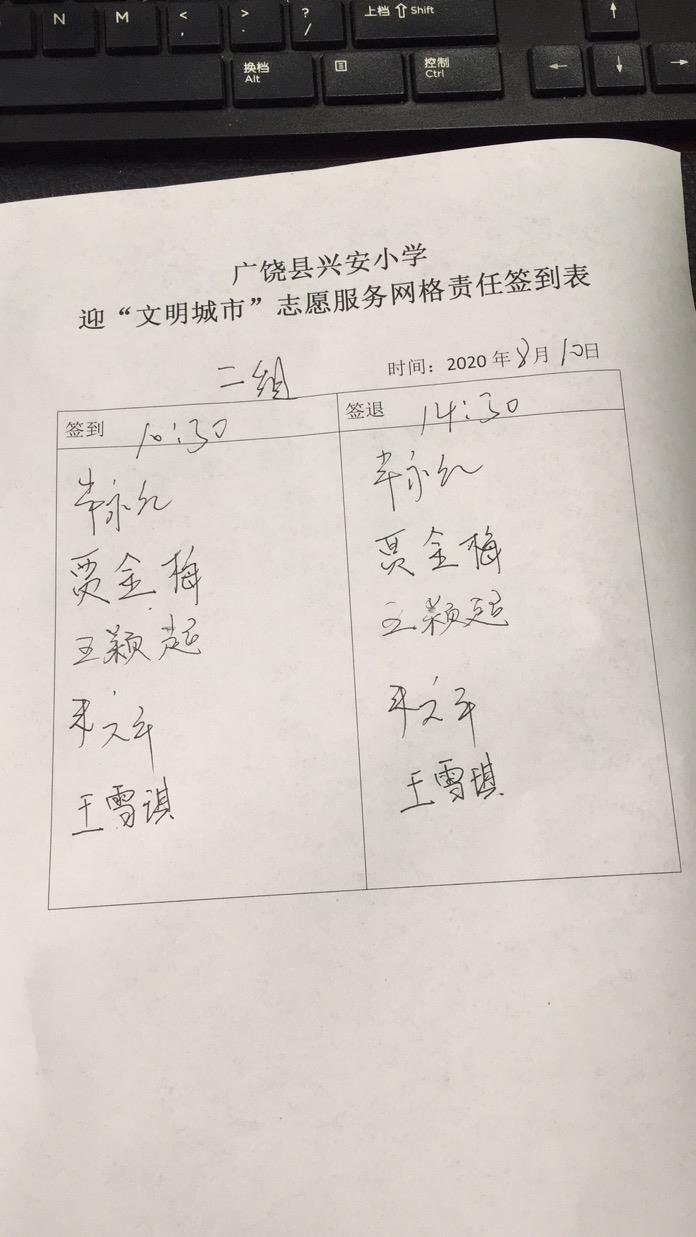 N M < , > . ? / 上档 Shift
换档 Alt 控制 Ctrl
广饶县兴安小学
迎“文明城市”志愿服务网格责任签到表
二组 时间：2020年8月10日
签到 10:30 签退 14:30
贾金梅 贾金梅
王颖超 王颖超
王雪琪 王雪琪